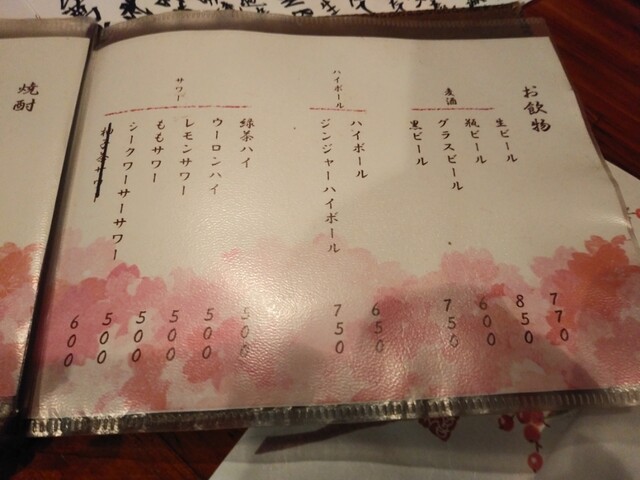 お飲物
麦酒
生ビール
770
瓶ビール
850
グラスビール
600
黒ビール
750
ハイボール
ハイボール
650
ジンジャーハイボール
750
サワー
緑茶ハイ
500
ウーロンハイ
500
レモンサワー
500
ももサワー
500
シークワーサーサワー
500
600
焼酎